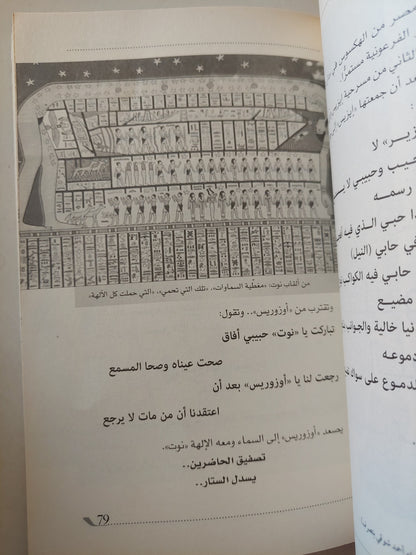 من ألقاب نوت: «معطية السماوات»، «تلك التي تحمي»، «التي حملت كل الآلهة»،
وتقترب من «أوزوريس».. وتقول:
تباركت يا «نوت» حبيبي أفاق
صحت عيناه وصحا المسمع
رجعت لنا يا «أوزوريس» بعد أن
اعتقدنا أن من مات لا يرجع
يصعد «أوزوريس» إلى السماء ومعه الإلهة «نوت».
تصفيق الحاضرين..
يسدل الستار..
79
مصر من الهكسوس في
الفرعونية مستمرًا
لثاني من مسرحية إيزيس
عد أن جمعتها «إيزيس
لا
حيب وحبيبي لا
رسمه
حبي الذي فيه
في حابي (النيل)
حابي فيه الكواكب
مضيع
نيا خالية والجوانب
دموعه
لدموع على سواك